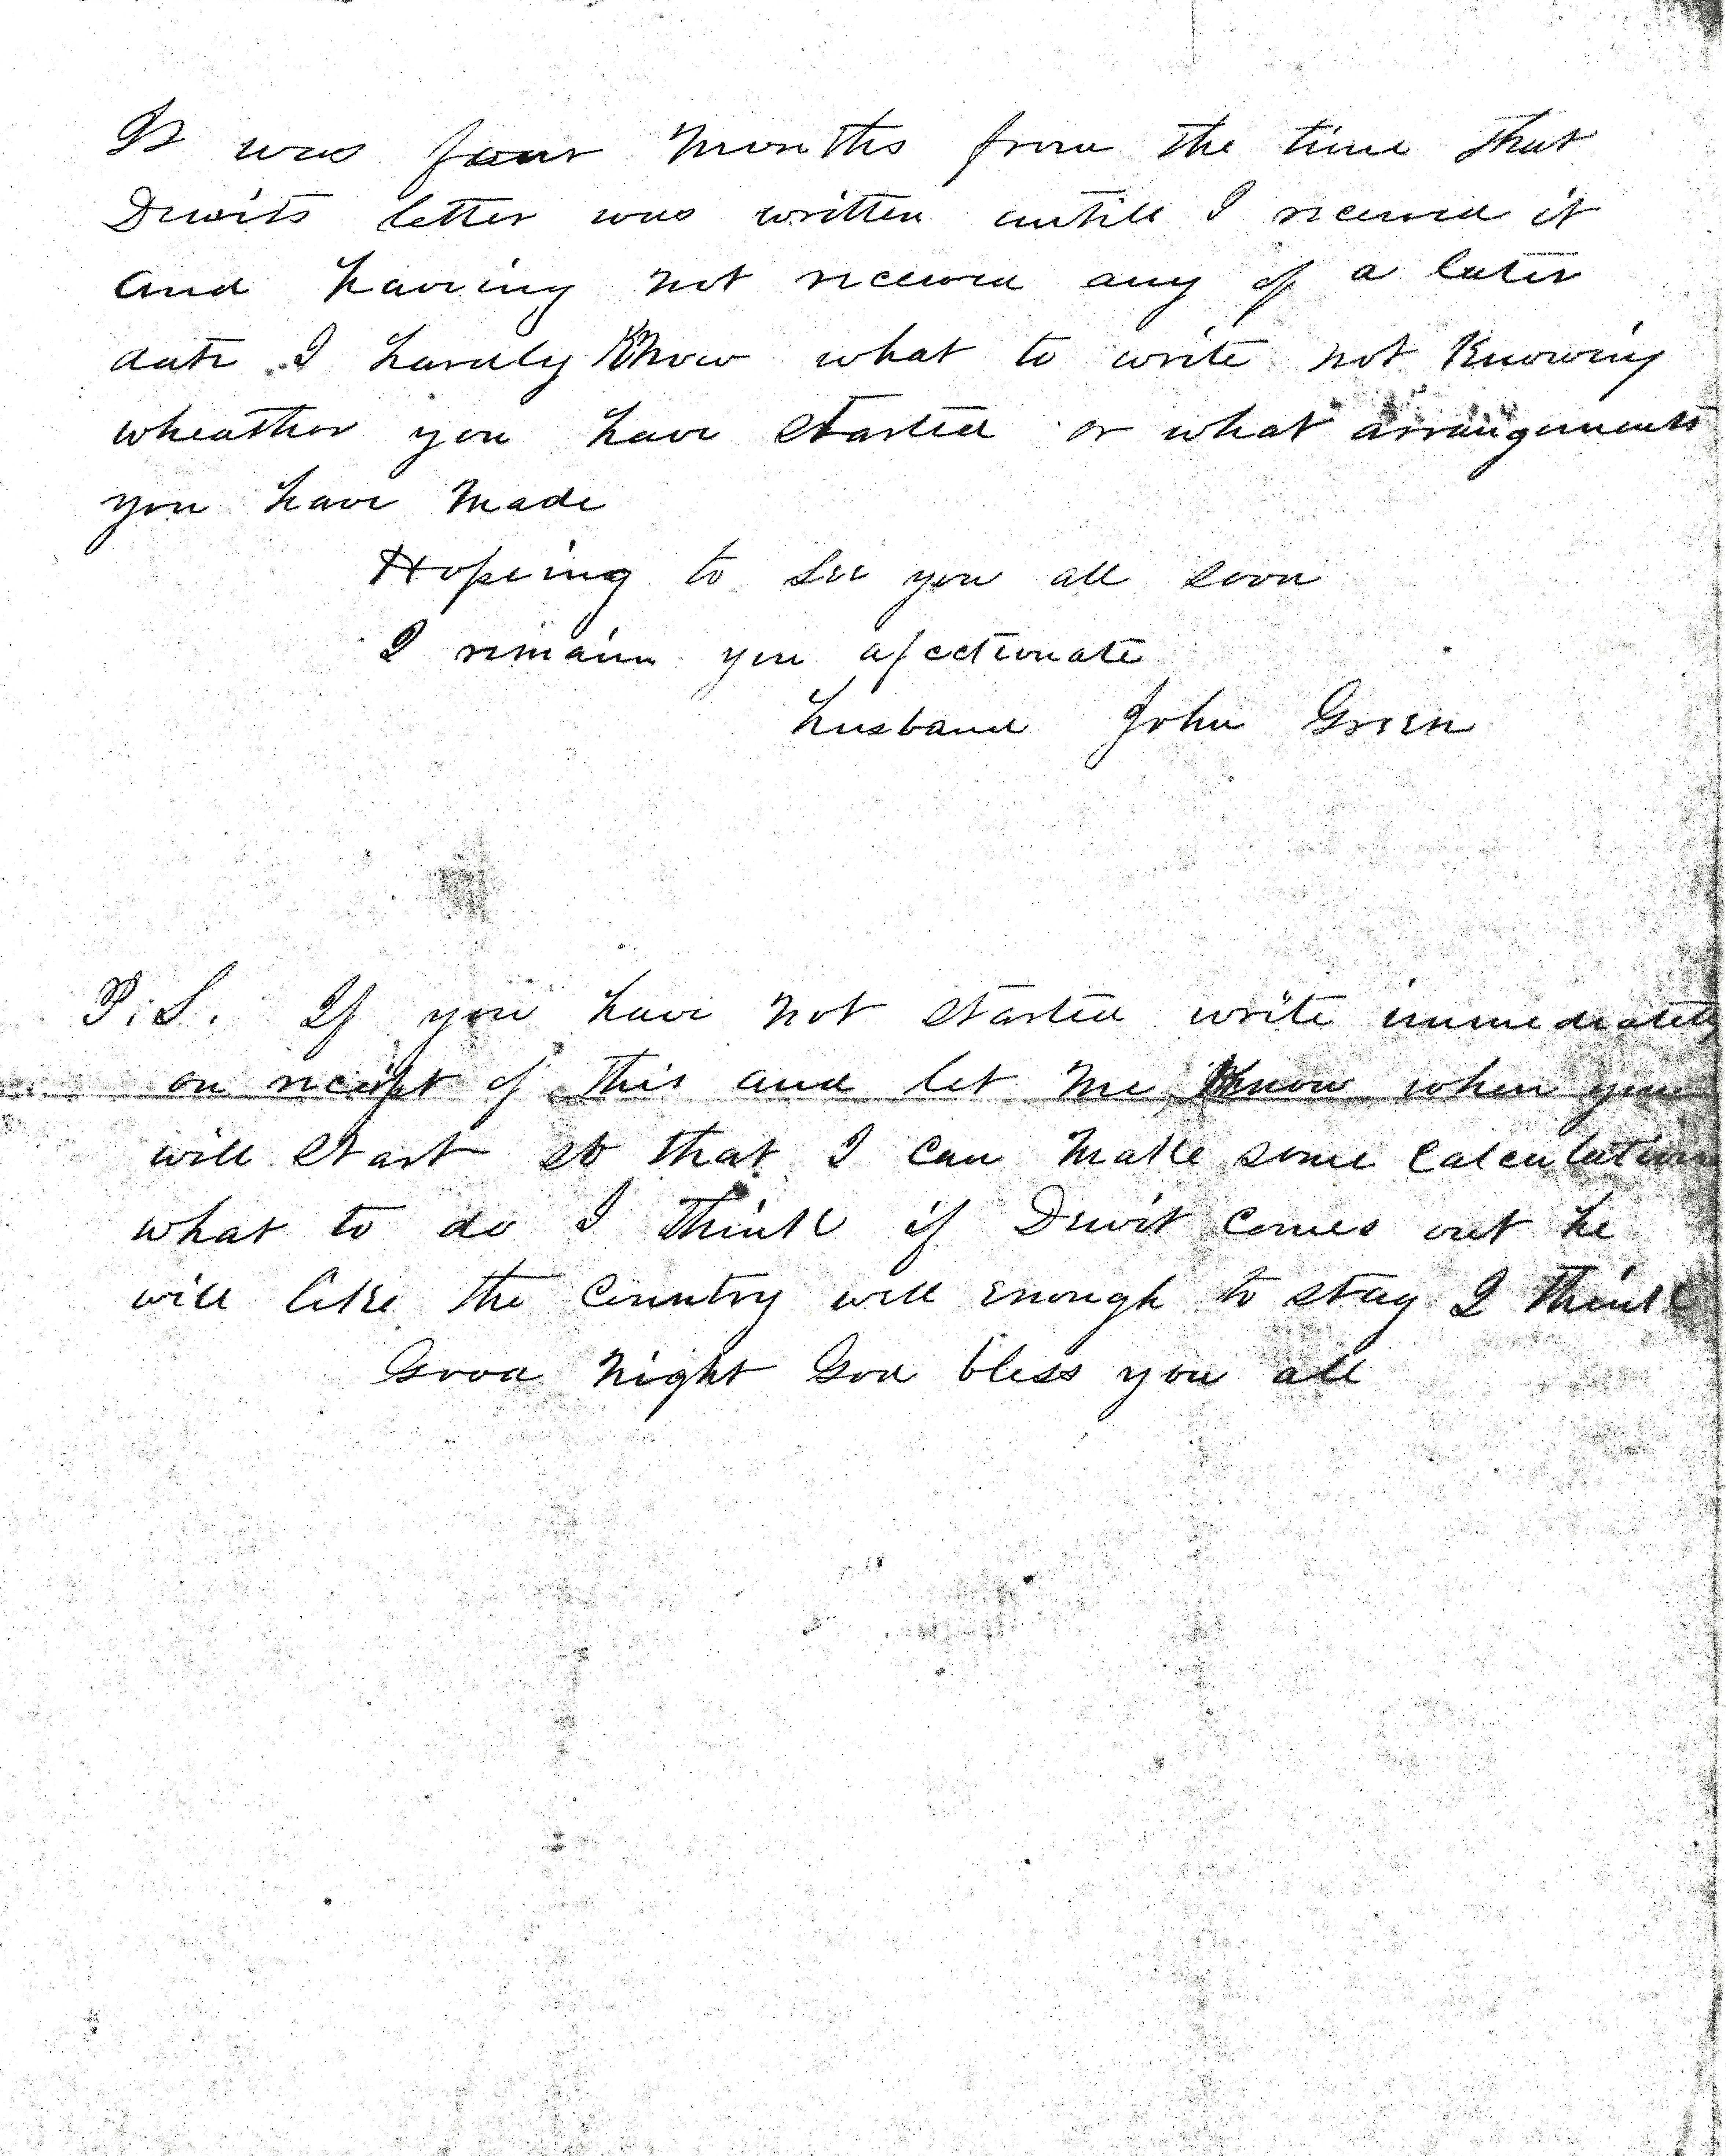 It was four months from the time that
Dewits letter was written untill I received it
and having not received any of a later
date I hardly Know what to write not Knowing
wheather you have started or what arrangements
you have made
Hopeing to see you all soon
I remain you afectionate
husband John Green
P.S. If you have not started write immediately
on receipt of this and let me know when you
will start so that I can make some calculation
what to do I think if Dewit comes out he
will like the Country well enough to stay I think
Good night God bless you all